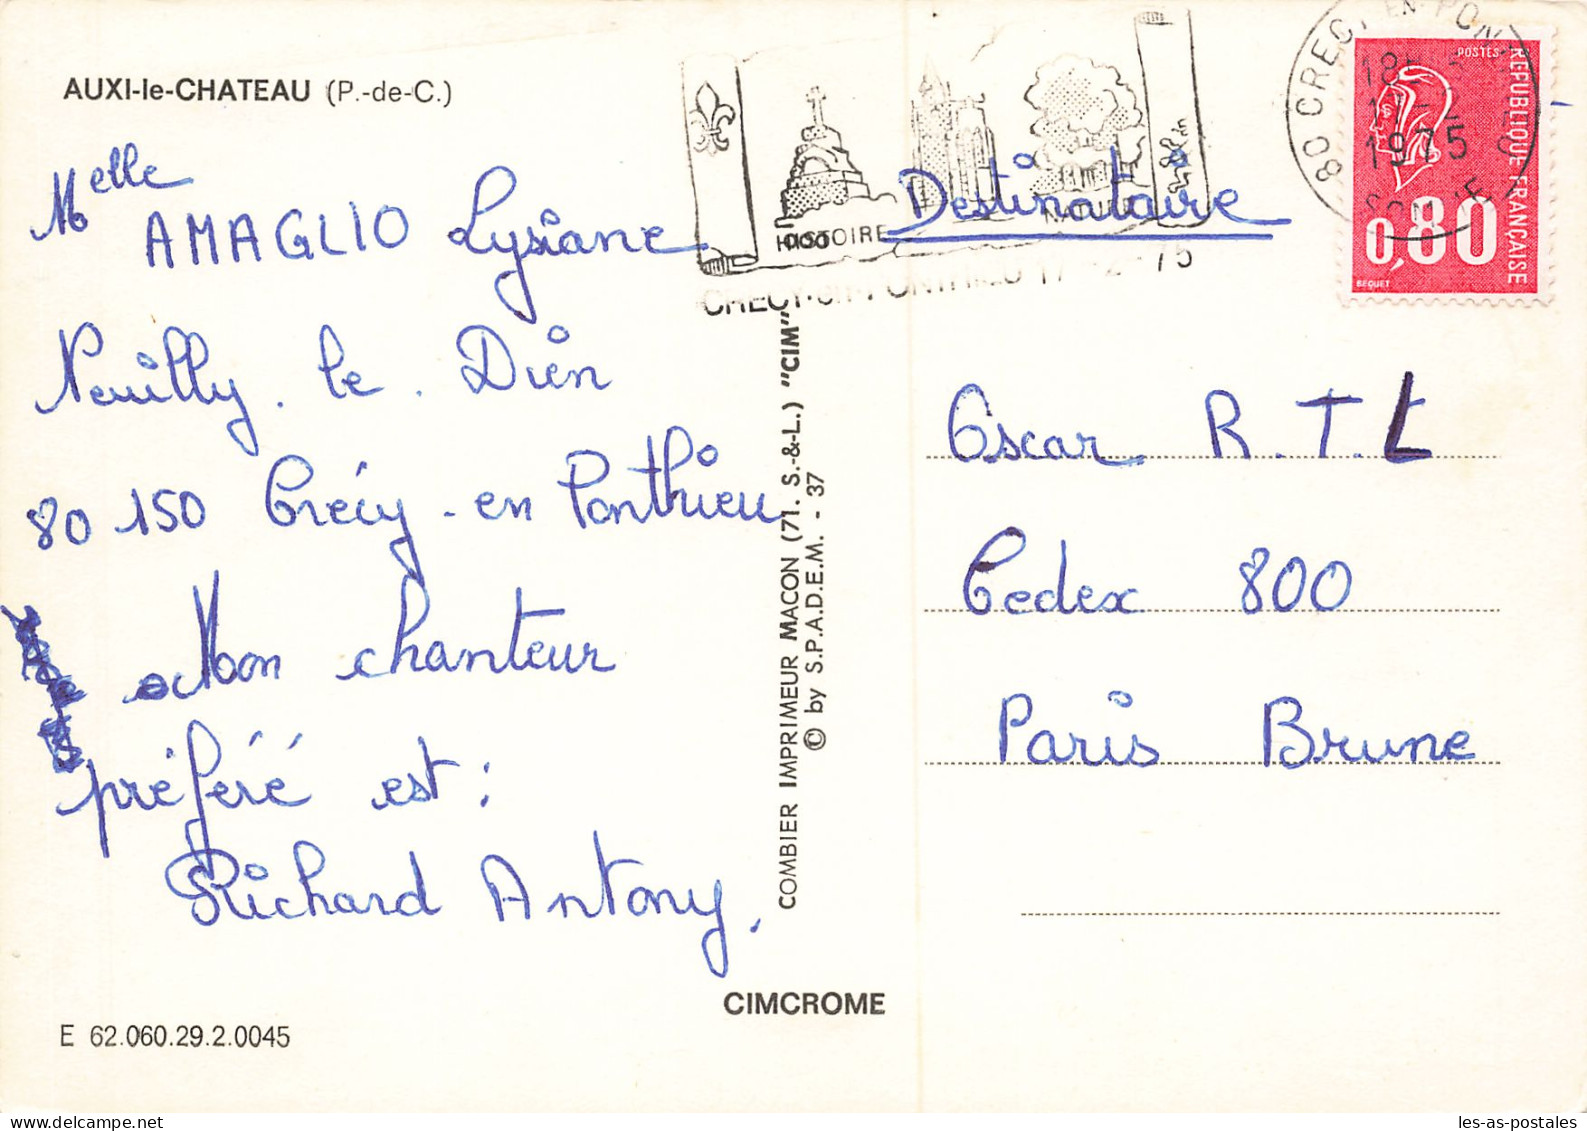 AUXI-le-CHATEAU (P.-de-C.)
Melle AMAGLIO Lysiane
Neuilly. le. Dien
80 150 Crécy-en Ponthieu
Mon chanteur
préféré est:
Richard Antony.
E 62.060.29.2.0045
CIMCROME
COMBIER IMPRIMEUR MACON (71. S.-&-L.) "CIM"
© by S.P.A.D.E.M. - 37
HISTOIRE
NATURE
80 CRECY EN PONTHIEU
1975
SOMME
POSTES
REPUBLIQUE FRANÇAISE
0,80
BEQUET
Destinataire
Oscar R.T.L
Cedex 800
Paris Brune
les-as-postales